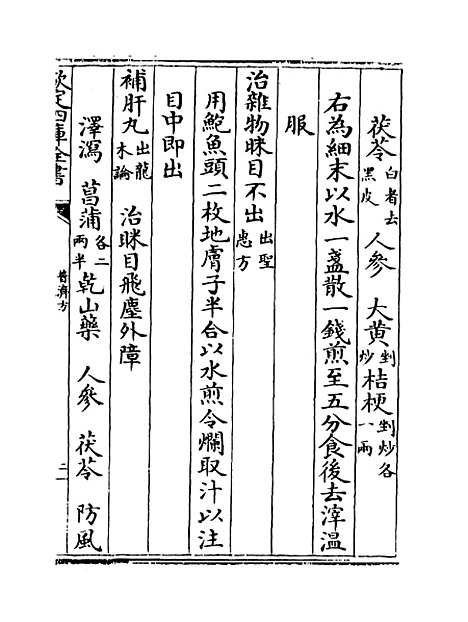 茯苓白者去黑皮 人參 大黄剉炒 桔梗剉炒各一兩
右為細末以水一盞散一錢煎至五分食後去滓温
服
治雜物眯目不出出聖惠方
用鮑魚頭二枚地膚子半合以水煎令爛取汁以注
目中即出
補肝丸出龍木論 治眯目飛塵外障
澤瀉 菖蒲各二兩半 乾山藥 人參 茯苓 防風
欽定四庫全書
普濟方